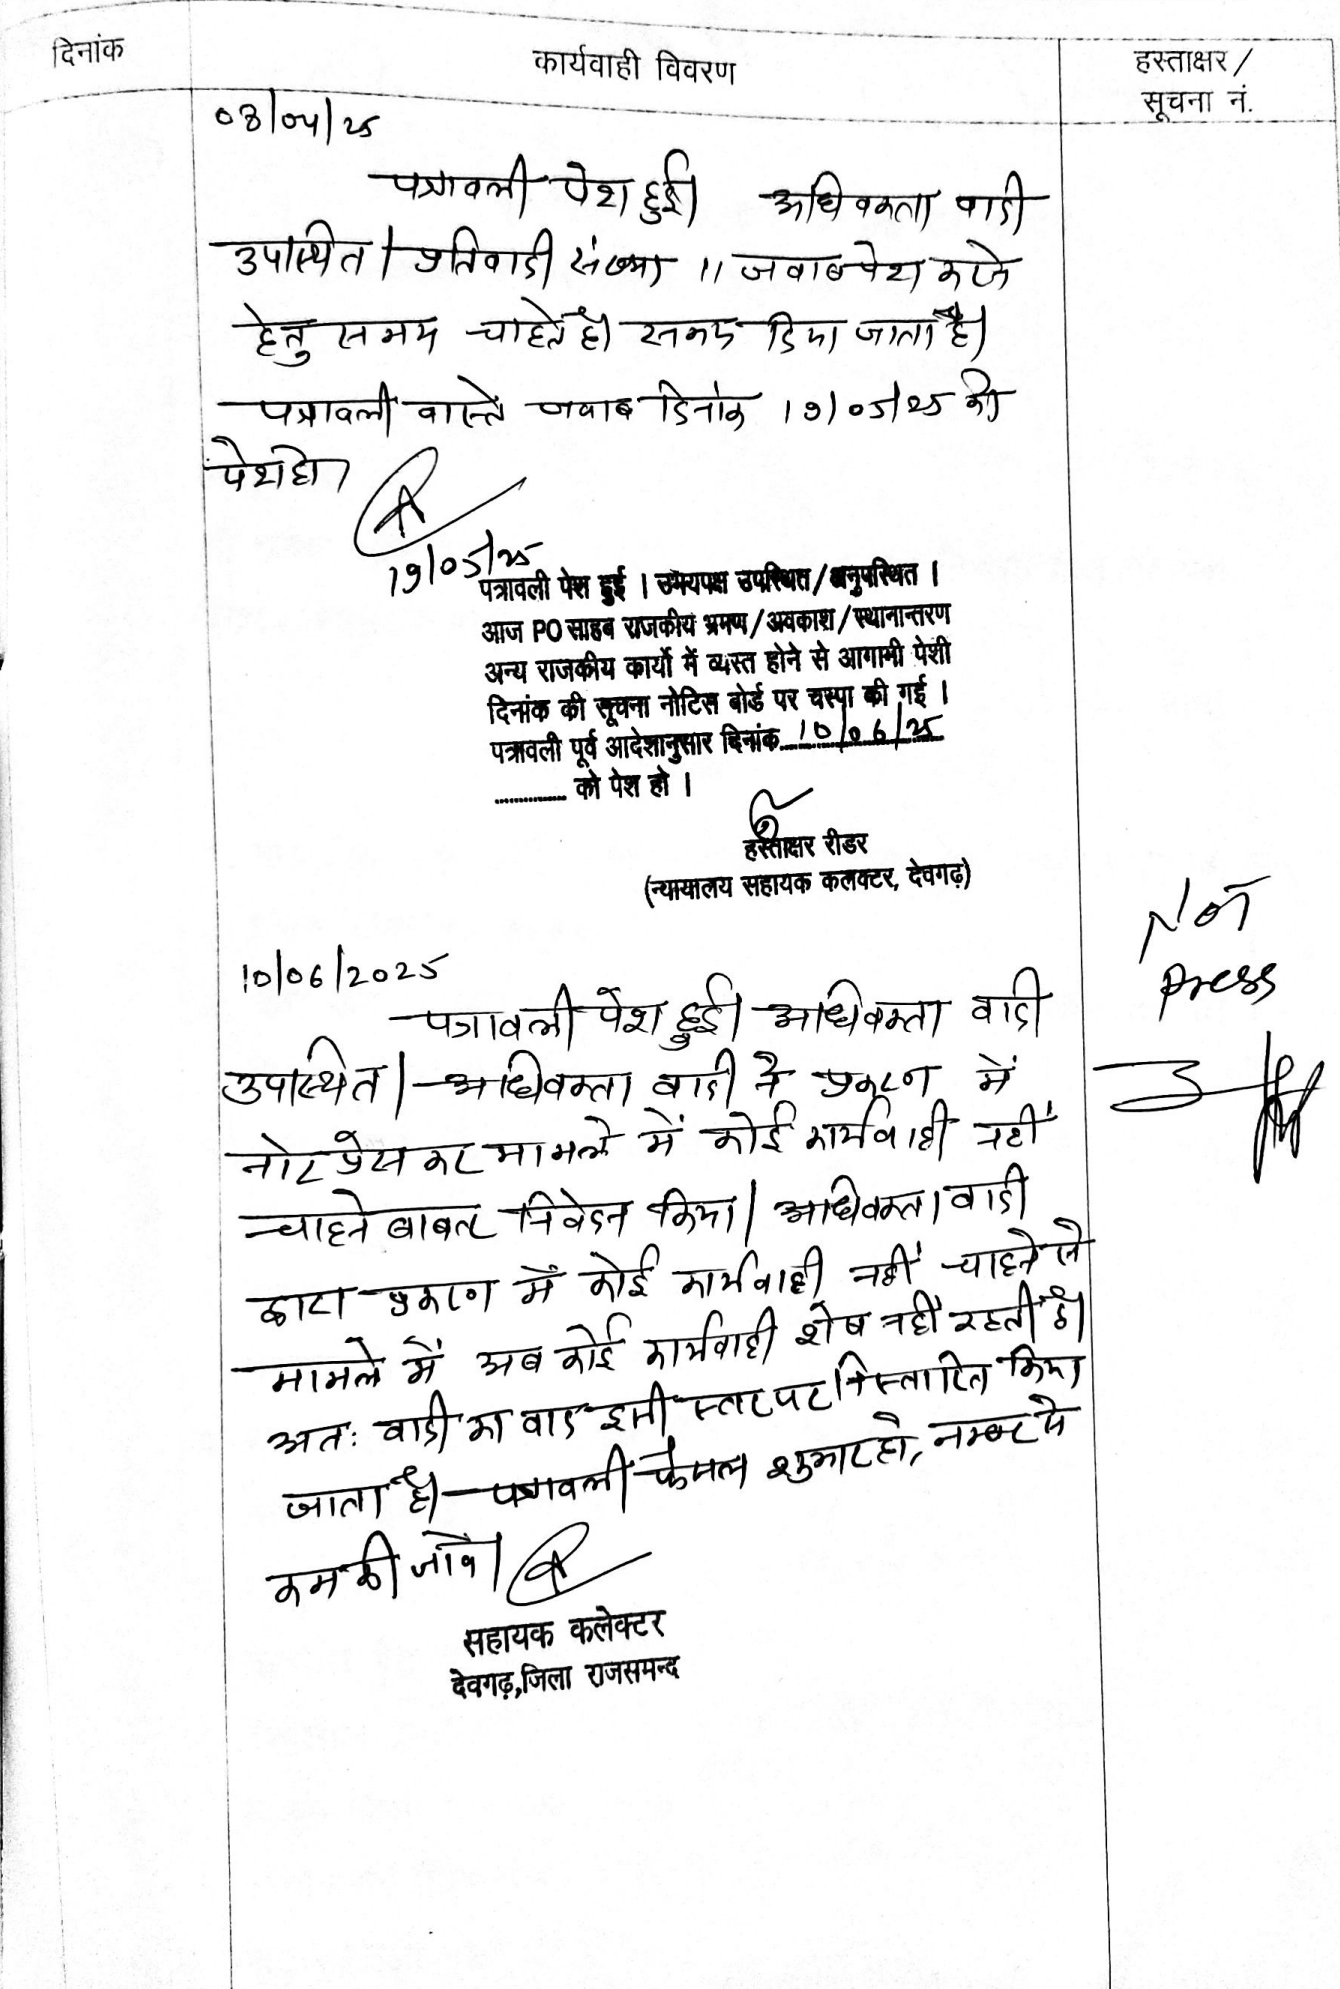 दिनांक
कार्यवाही विवरण
हस्ताक्षर /
सूचना नं.
03/04/25
पत्रावली पेश हुई। अधिवक्ता वादी
उपास्थित। प्रतिवादी संख्या 11 जवाब पेश करने
हेतु समय चाहते है। समय दिया जाता है।
पत्रावली वास्ते जवाब दिनांक 19/05/25 को
पेश हो।
19/05/25
पत्रावली पेश हुई । उभयपक्ष उपस्थित/अनुपस्थित ।
आज PO साहब राजकीय भ्रमण/अवकाश/स्थानान्तरण
अन्य राजकीय कार्यो में व्यस्त होने से आगामी पेशी
दिनांक की सूचना नोटिस बोर्ड पर चस्पा की गई ।
पत्रावली पूर्व आदेशानुसार दिनांक 10/06/25
............... को पेश हो ।
हस्ताक्षर रीडर
(न्यायालय सहायक कलक्टर, देवगढ़)
Not
Press
10/06/2025
पत्रावली पेश हुई। अधिवक्ता वादी
उपास्थित। अधिवक्ता वादी ने प्रकरण में
नोट प्रेस कर मामले में कोई कार्यवाही नहीं
चाहने बाबत निवेदन किया। अधिवक्ता वादी
द्वारा प्रकरण में कोई कार्यवाही नहीं चाहने से
मामले में अब कोई कार्यवाही शेष नहीं रहती है।
अतः वादी का वाद इसी स्तर पर निस्तारित किया
जाता है। पत्रावली फैसल शुमार हो, नम्बर से
कम की जावे।
सहायक कलेक्टर
देवगढ़,जिला राजसमन्द